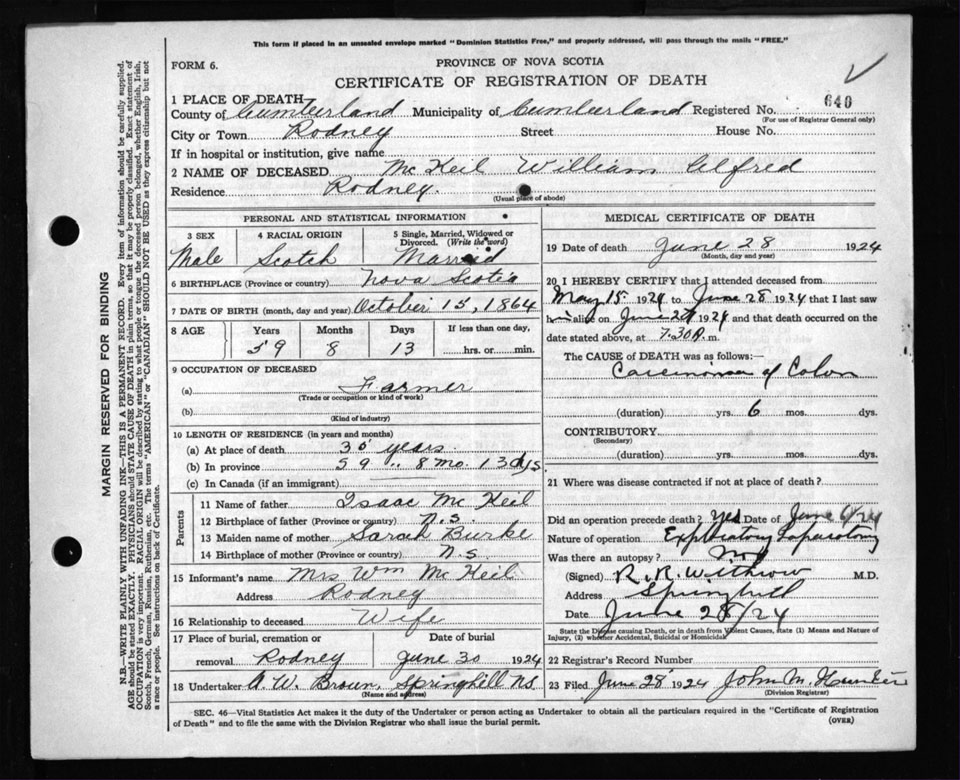 This form if placed in an unsealed envelope marked "Dominion Statistics Free," and properly addressed, will pass through the mails "FREE."
FORM 6.
PROVINCE OF NOVA SCOTIA
CERTIFICATE OF REGISTRATION OF DEATH
1 PLACE OF DEATH
County of Cumberland Municipality of Cumberland Registered No. 640
(For use of Registrar General only)
City or Town Rodney Street House No.
If in hospital or institution, give name
2 NAME OF DECEASED McNeil William Alfred
Residence Rodney.
(Usual place of abode)
MARGIN RESERVED FOR BINDING
N.B.—WRITE PLAINLY WITH UNFADING INK—THIS IS A PERMANENT RECORD. Every item of information should be carefully supplied.
AGE should be stated EXACTLY. PHYSICIANS should STATE CAUSE OF DEATH in plain terms, so that it may be properly classified. Exact statement of
OCCUPATION is very important. RACIAL ORIGIN will be described by stating to what people or tongue the deceased person belonged, whether English, Irish,
Scotch, French, German, Russian, Ruthenian, etc. The terms "AMERICAN" or "CANADIAN" SHOULD NOT BE USED as they express citizenship but not
a race or people. See instructions on back of Certificate.
PERSONAL AND STATISTICAL INFORMATION
3 SEX 4 RACIAL ORIGIN 5 Single, Married, Widowed or
Divorced. (Write the word)
Male Scotch Married
6 BIRTHPLACE (Province or country) Nova Scotia
7 DATE OF BIRTH (month, day and year) October 15, 1864
8 AGE Years Months Days If less than one day,
59 8 13 hrs. or min.
9 OCCUPATION OF DECEASED
(a) Farmer
(Trade or occupation or kind of work)
(b)
(Kind of industry)
10 LENGTH OF RESIDENCE (in years and months)
(a) At place of death 30 years
(b) In province 59 " 8 mo. 13 dys.
(c) In Canada (if an immigrant)
Parents
11 Name of father Isaac McNeil
12 Birthplace of father (Province or country) N.S.
13 Maiden name of mother Sarah Burke
14 Birthplace of mother (Province or country) N.S.
15 Informant's name Mrs Wm McNeil
Address Rodney
16 Relationship to deceased Wife
17 Place of burial, cremation or Date of burial
removal Rodney June 30 1924
18 Undertaker A. W. Brown, Springhill N.S.
(Name and address)
MEDICAL CERTIFICATE OF DEATH
19 Date of death June 28 1924
(Month, day and year)
20 I HEREBY CERTIFY that I attended deceased from
May 15 1924 to June 28 1924 that I last saw
him alive on June 27 1924 and that death occurred on the
date stated above, at 7.30 P. m.
The CAUSE OF DEATH was as follows:
Carcinoma of Colon
(duration) yrs. 6 mos. dys.
CONTRIBUTORY
(Secondary)
(duration) yrs. mos. dys.
21 Where was disease contracted if not at place of death?
Did an operation precede death? Yes Date of June 6/24
Nature of operation Exploratory Laparotomy
Was there an autopsy? No
(Signed) R. R. Withrow M.D.
Address Springhill
Date June 28/24
State the Disease causing Death, or in death from Violent Causes, state (1) Means and Nature of
Injury, (2) whether Accidental, Suicidal or Homicidal
22 Registrar's Record Number
23 Filed June 28 1924 John M. Hunter
(Division Registrar)
SEC. 46—Vital Statistics Act makes it the duty of the Undertaker or person acting as Undertaker to obtain all the particulars required in the "Certificate of Registration
of Death" and to file the same with the Division Registrar who shall issue the burial permit.
(OVER)